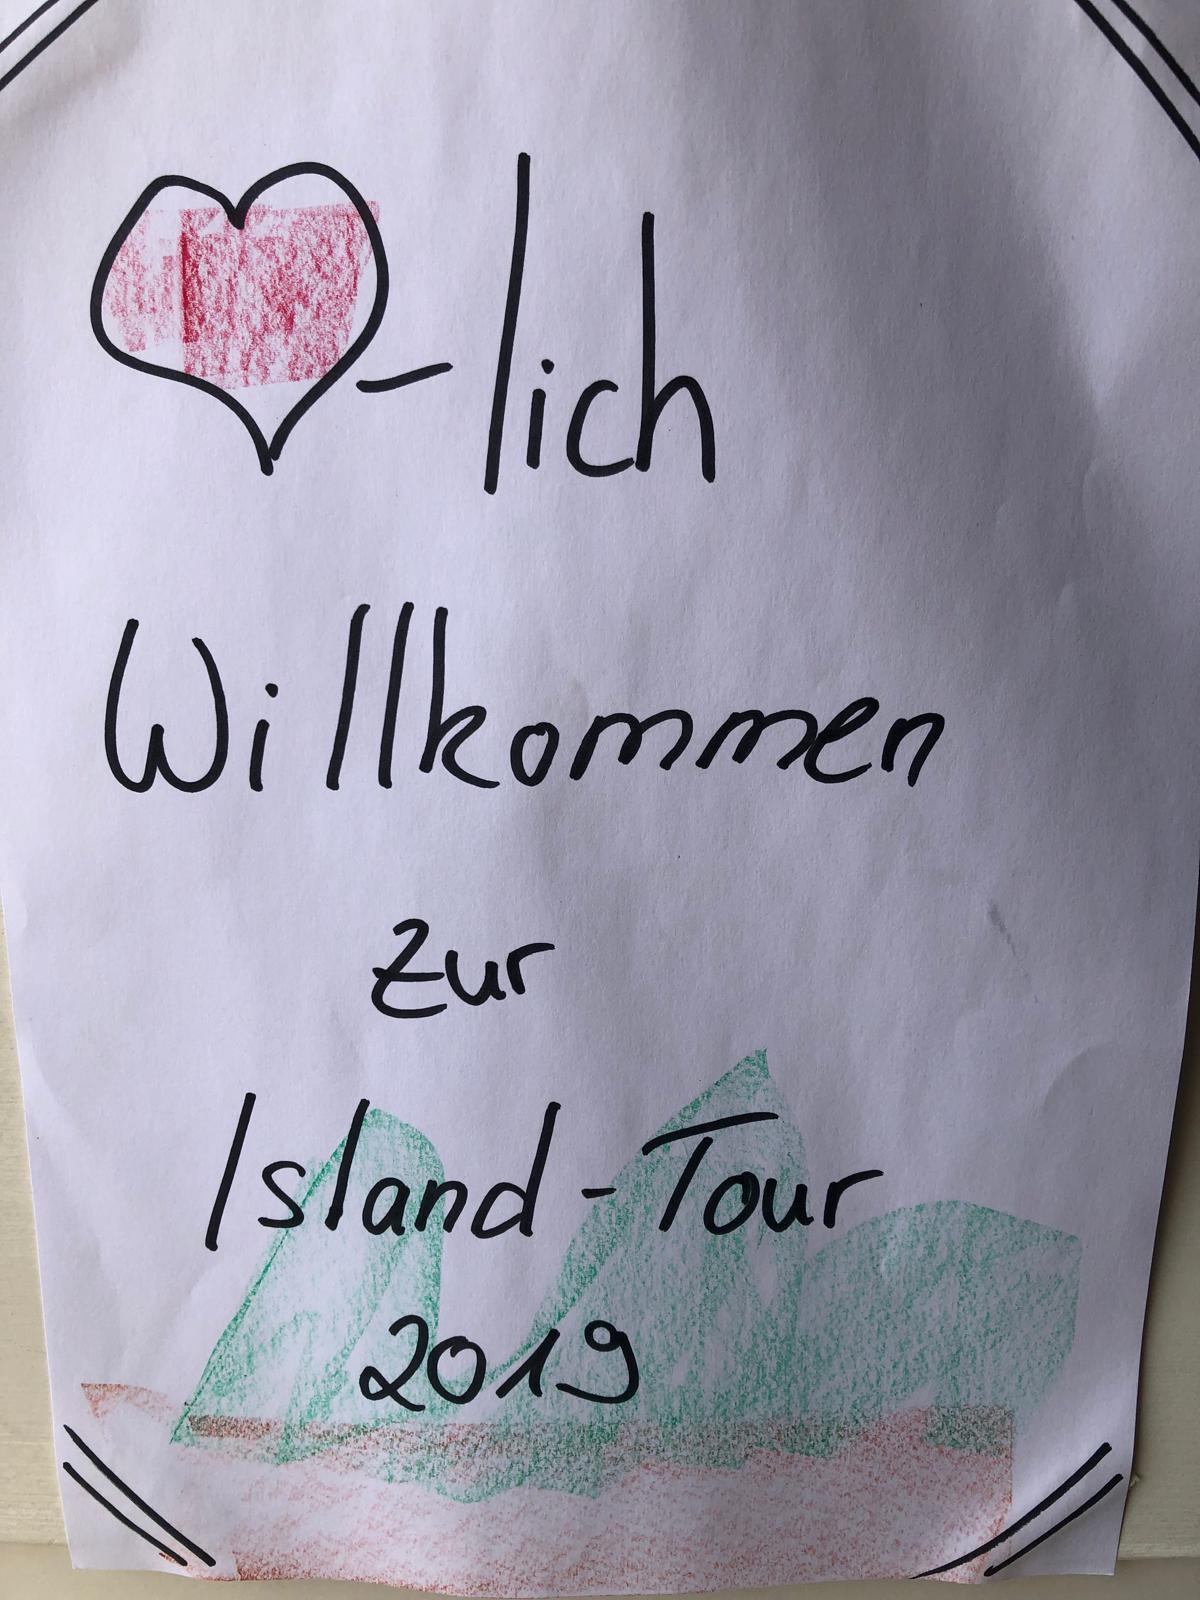 -lich
Willkommen
zur
Island-Tour
2019